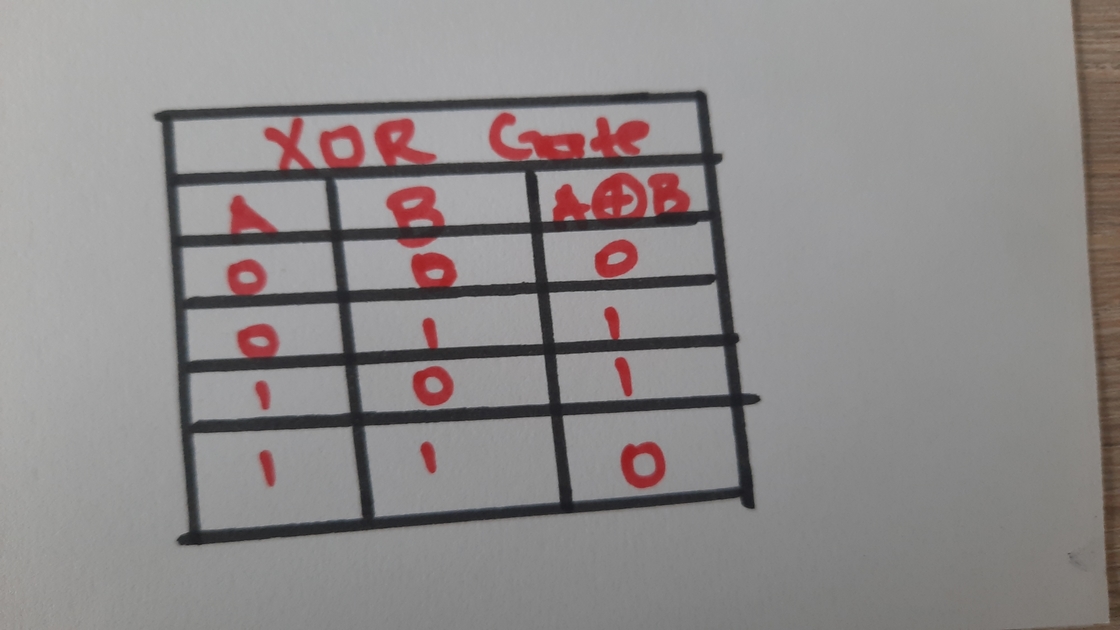 XOR Gate
A B A⊕B
0 0 0
0 1 1
1 0 1
1 1 0